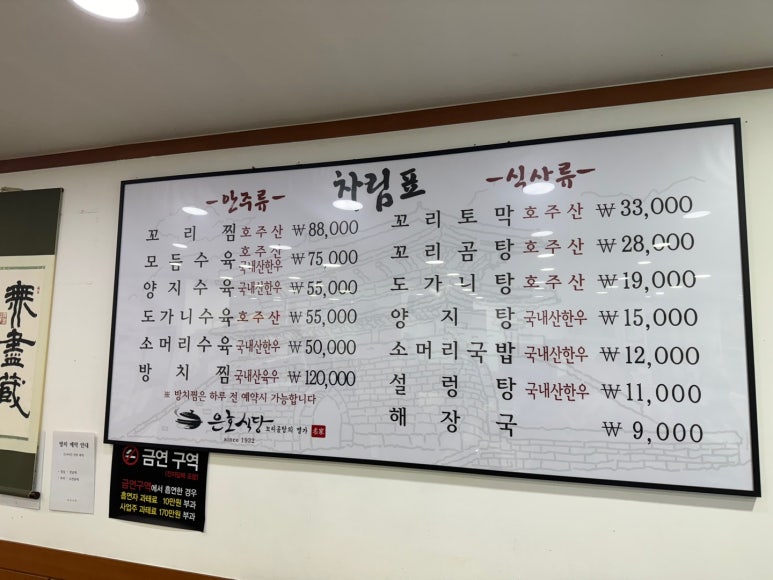 차림표
-안주류-
꼬리찜 호주산 ₩88,000
모듬수육 호주산 국내산한우 ₩75,000
양지수육 국내산한우 ₩55,000
도가니수육 호주산 ₩55,000
소머리수육 국내산한우 ₩50,000
방치찜 국내산육우 ₩120,000
※ 방치찜은 하루 전 예약시 가능합니다
은호식당 꼬리곰탕의 명가
since 1932
-식사류-
꼬리토막 호주산 ₩33,000
꼬리곰탕 호주산 ₩28,000
도가니탕 호주산 ₩19,000
양지탕 국내산한우 ₩15,000
소머리국밥 국내산한우 ₩12,000
설렁탕 국내산한우 ₩11,000
해장국 ₩9,000
無盡藏
금연 구역
금연구역에서 흡연한 경우
흡연자 과태료 10만원 부과
사업주 과태료 170만원 부과